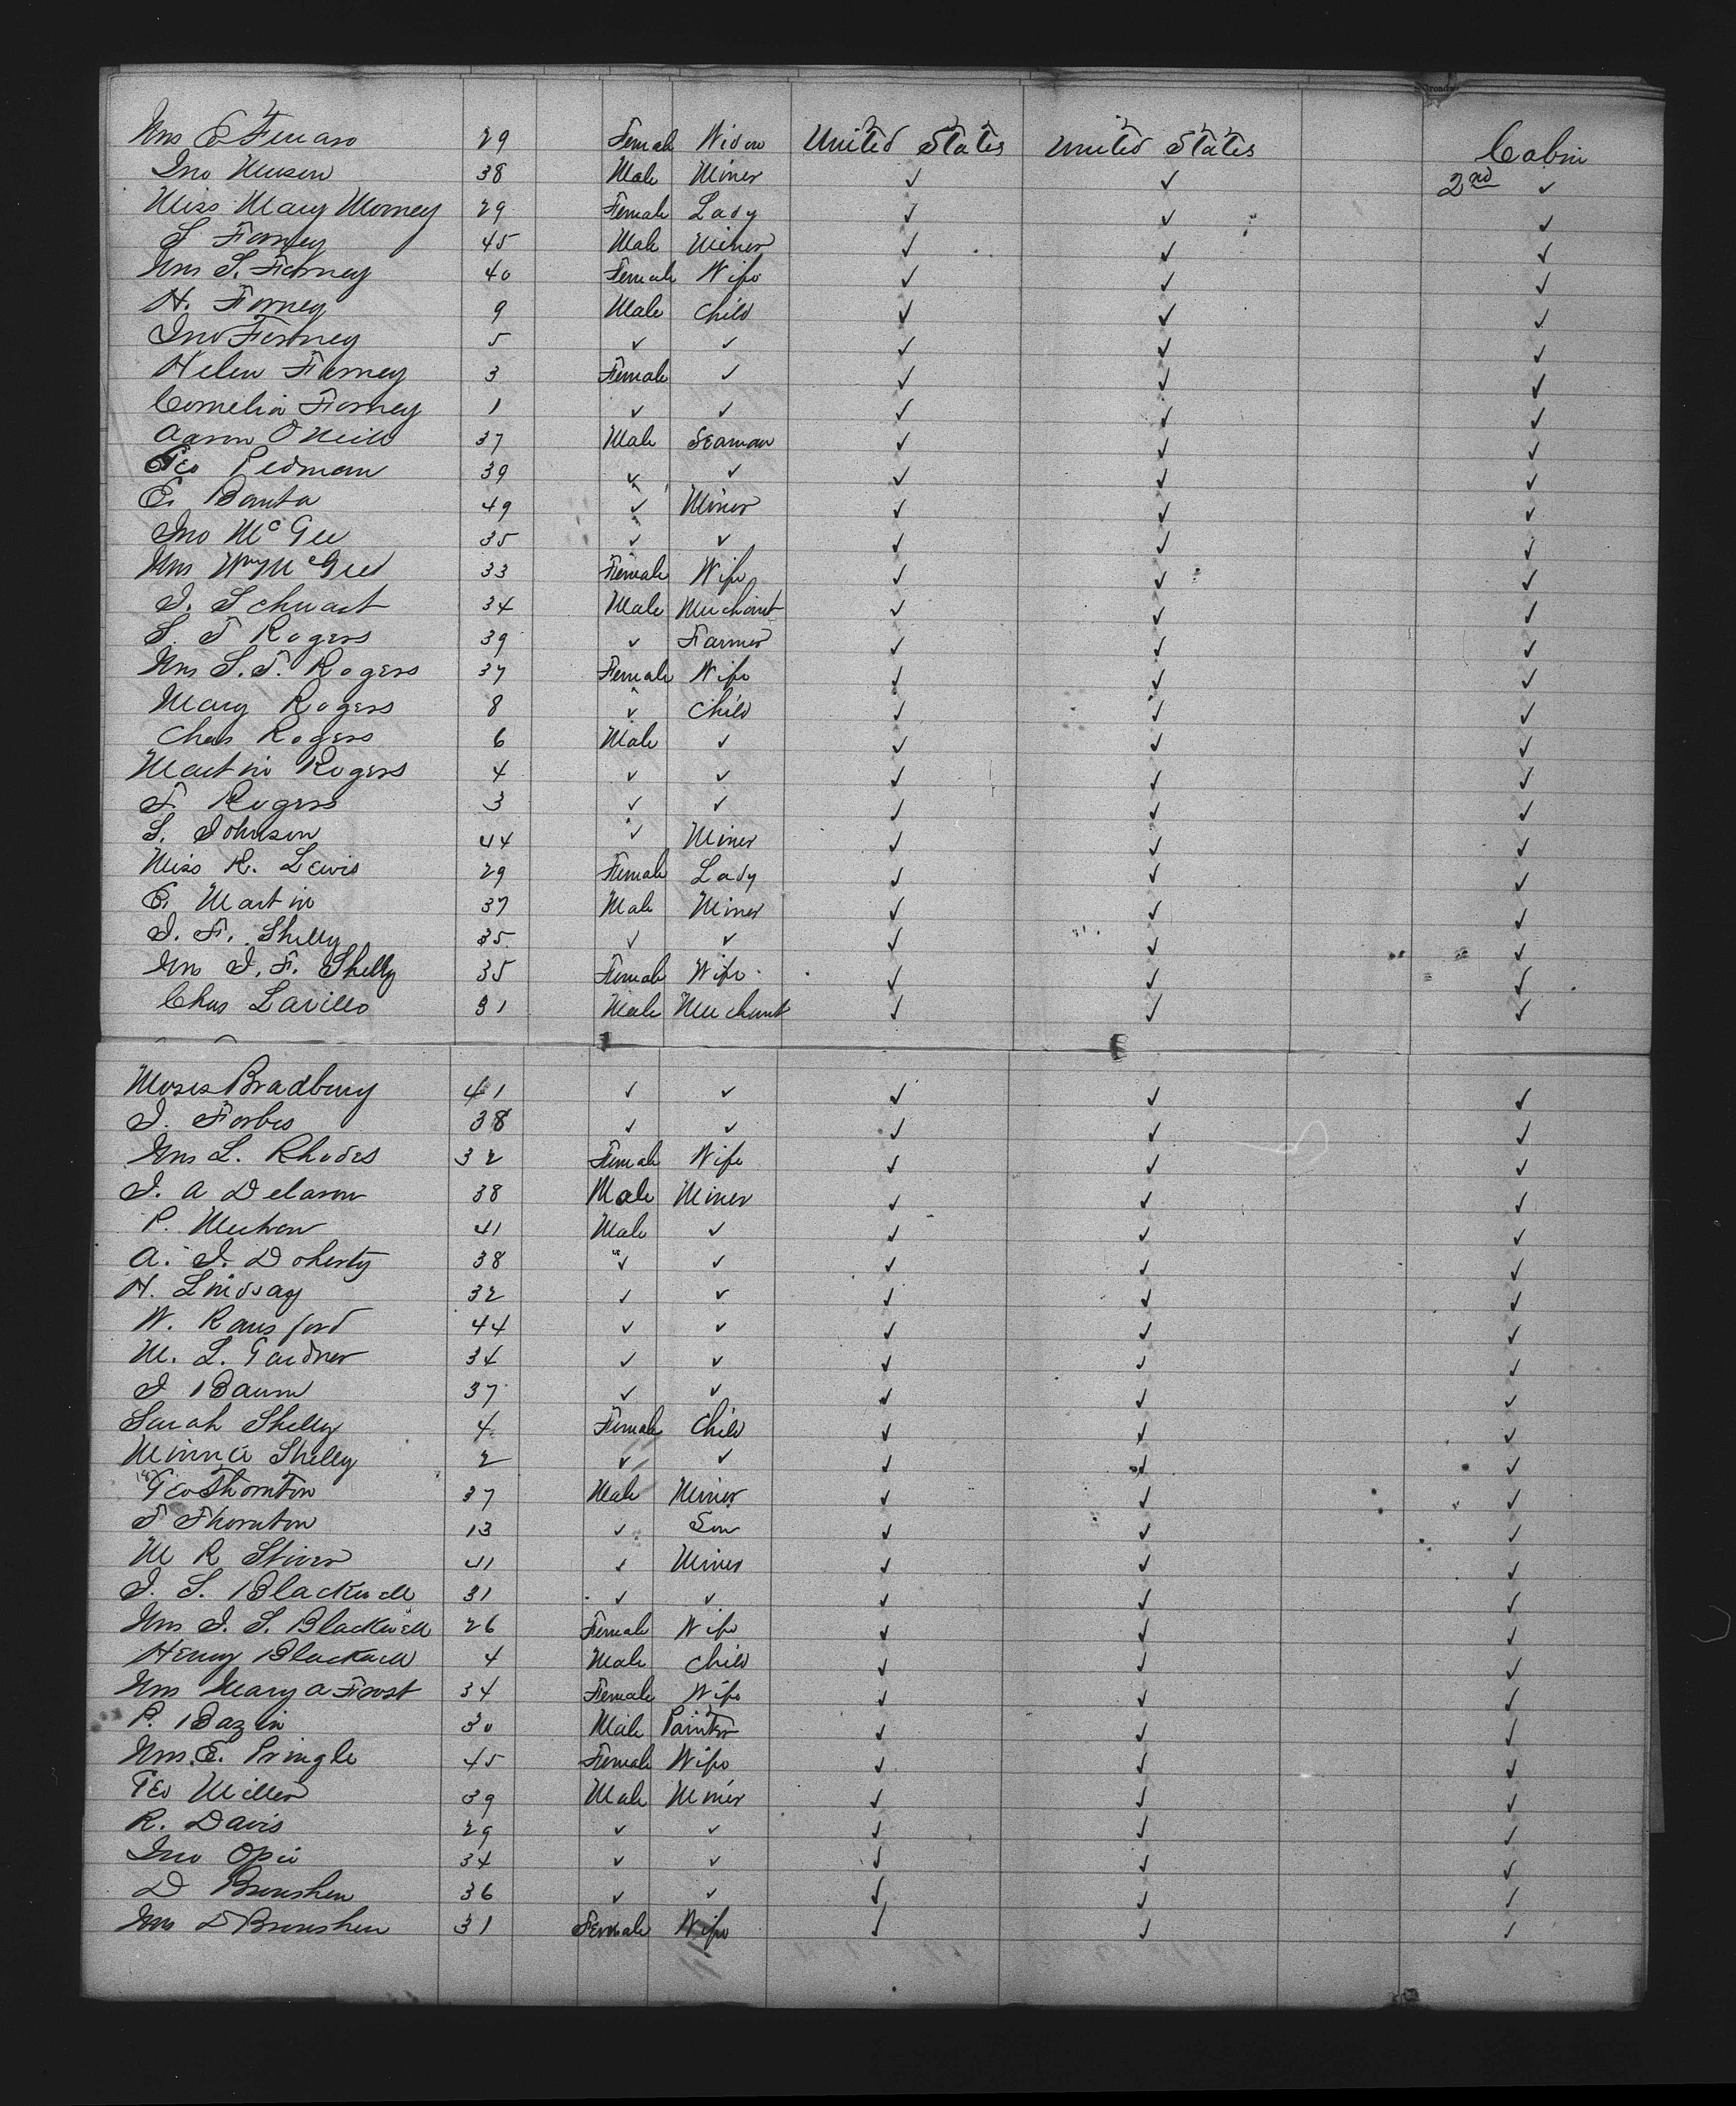 Mrs E Feuaro 29 Female Widow United States United States Cabin
Jno Neuson 38 Male Miner ✓ ✓ 2nd ✓
Miss Mary Morney 29 Female Lady ✓ ✓ ✓
S Forney 45 Male Miner ✓ ✓ ✓
Mrs S. Forney 40 Female Wife ✓ ✓ ✓
H. Forney 9 Male Child ✓ ✓ ✓
Jno Forney 5 ✓ ✓ ✓ ✓ ✓
Helen Forney 3 Female ✓ ✓ ✓ ✓
Cornelia Forney 1 ✓ ✓ ✓ ✓ ✓
Aaron O Neill 37 Male Seaman ✓ ✓ ✓
Geo Pedman 39 ✓ ✓ ✓ ✓ ✓
E. Banta 49 ✓ Miner ✓ ✓ ✓
Jno McGee 35 ✓ ✓ ✓ ✓ ✓
Mrs Wm McGee 33 Female Wife ✓ ✓ ✓
J. Schwart 34 Male Merchant ✓ ✓ ✓
S. T Rogers 39 ✓ Farmer ✓ ✓ ✓
Mrs S. T. Rogers 37 Female Wife ✓ ✓ ✓
Mary Rogers 8 ✓ Child ✓ ✓ ✓
Chas Rogers 6 Male ✓ ✓ ✓ ✓
Martin Rogers 4 ✓ ✓ ✓ ✓ ✓
T. Rogers 3 ✓ ✓ ✓ ✓ ✓
S. Johnson 44 ✓ Miner ✓ ✓ ✓
Miss R. Lewis 29 Female Lady ✓ ✓ ✓
E. Martin 37 Male Miner ✓ ✓ ✓
J. F. Shelly 35 ✓ ✓ ✓ ✓ ✓
Mrs J. F. Shelly 35 Female Wife ✓ ✓ ✓
Chas Lavillo 31 Male Merchant ✓ ✓ ✓
Moses Bradbury 41 ✓ ✓ ✓ ✓ ✓
J. Forbes 38 ✓ ✓ ✓ ✓ ✓
Mrs L. Rhodes 32 Female Wife ✓ ✓ ✓
J. A Delason 38 Male Miner ✓ ✓ ✓
P. Meehan 41 Male ✓ ✓ ✓ ✓
A. J. Doherty 38 ✓ ✓ ✓ ✓ ✓
H. Lindsay 32 ✓ ✓ ✓ ✓ ✓
W. Ransford 44 ✓ ✓ ✓ ✓ ✓
M. L. Gardner 34 ✓ ✓ ✓ ✓ ✓
J Baum 37 ✓ ✓ ✓ ✓ ✓
Sarah Shelly 4 Female Child ✓ ✓ ✓
Minnie Shelly 2 ✓ ✓ ✓ ✓ ✓
Geo Thornton 37 Male Miner ✓ ✓ ✓
T Thornton 13 ✓ Son ✓ ✓ ✓
M R Stiver 41 ✓ Miner ✓ ✓ ✓
J. S. Blackwell 31 ✓ ✓ ✓ ✓ ✓
Mrs J. S. Blackwell 26 Female Wife ✓ ✓ ✓
Henry Blackwell 4 Male Child ✓ ✓ ✓
Mrs Mary A Frost 34 Female Wife ✓ ✓ ✓
P. Bazin 30 Male Painter ✓ ✓ ✓
Mrs. E. Pringle 45 Female Wife ✓ ✓ ✓
Geo Miller 39 Male Miner ✓ ✓ ✓
R. Davis 29 ✓ ✓ ✓ ✓ ✓
Jno Opie 34 ✓ ✓ ✓ ✓ ✓
D Bronshen 36 ✓ ✓ ✓ ✓ ✓
Mrs D Bronshen 31 Female Wife ✓ ✓ ✓